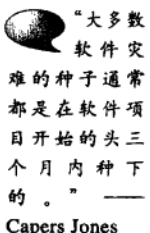 “大多数
软件灾
难的种子通常
都是在软件项
目开始的头三
个月内种下
的。”——
Capers Jones